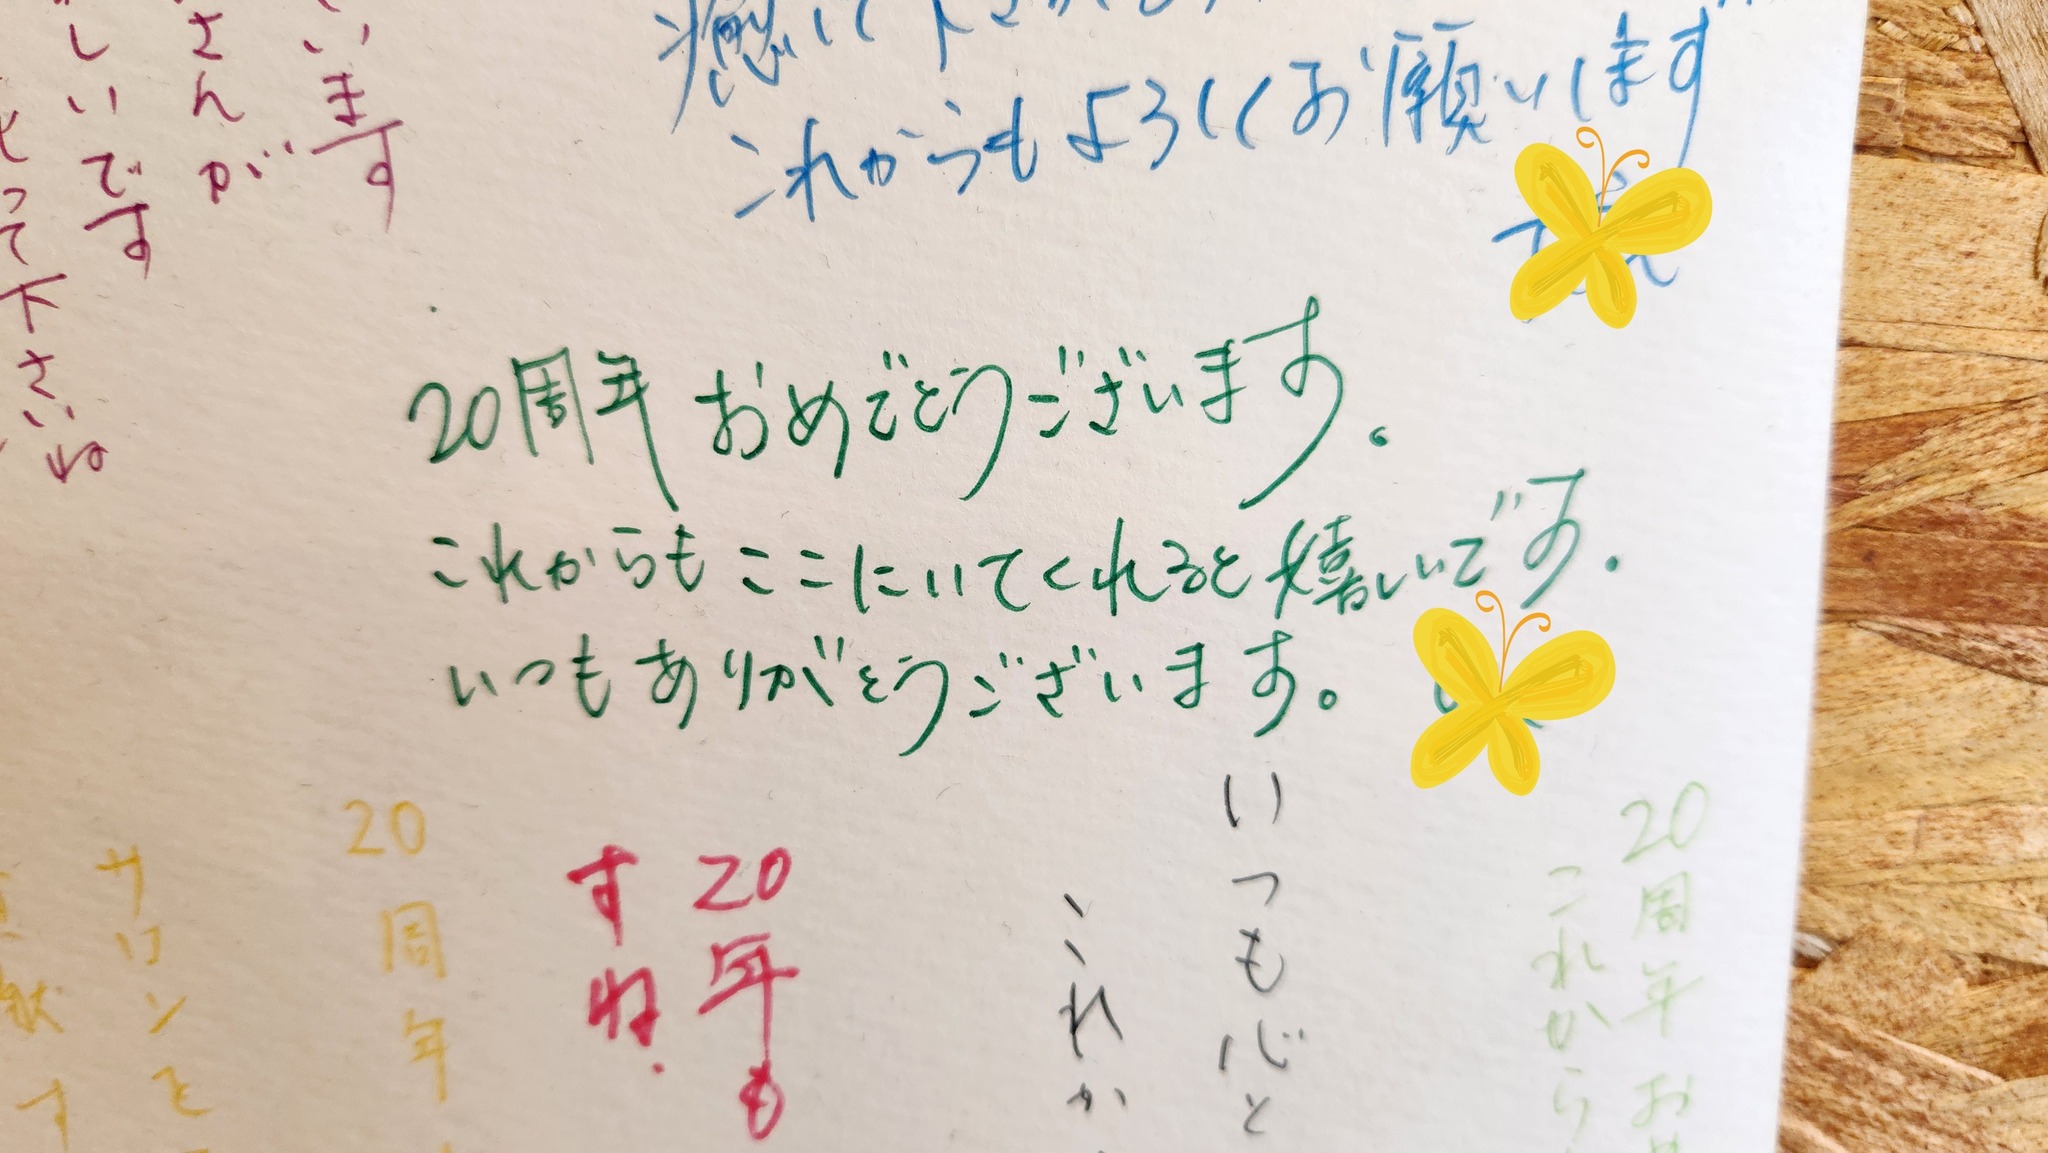 癒して下さい
これからもよろしくお願いします
います
さんが
しいです
って下さいね
20周年おめでとうございます。
これからもここにいてくれると嬉しいです.
いつもありがとうございます。
20周年お
これから
いつも心と
これか
20年も
すね.
20周年
サロンを
す